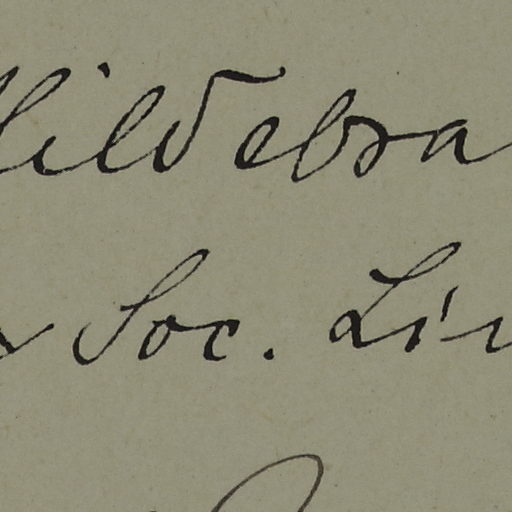 Hildebra
Soc. Lin